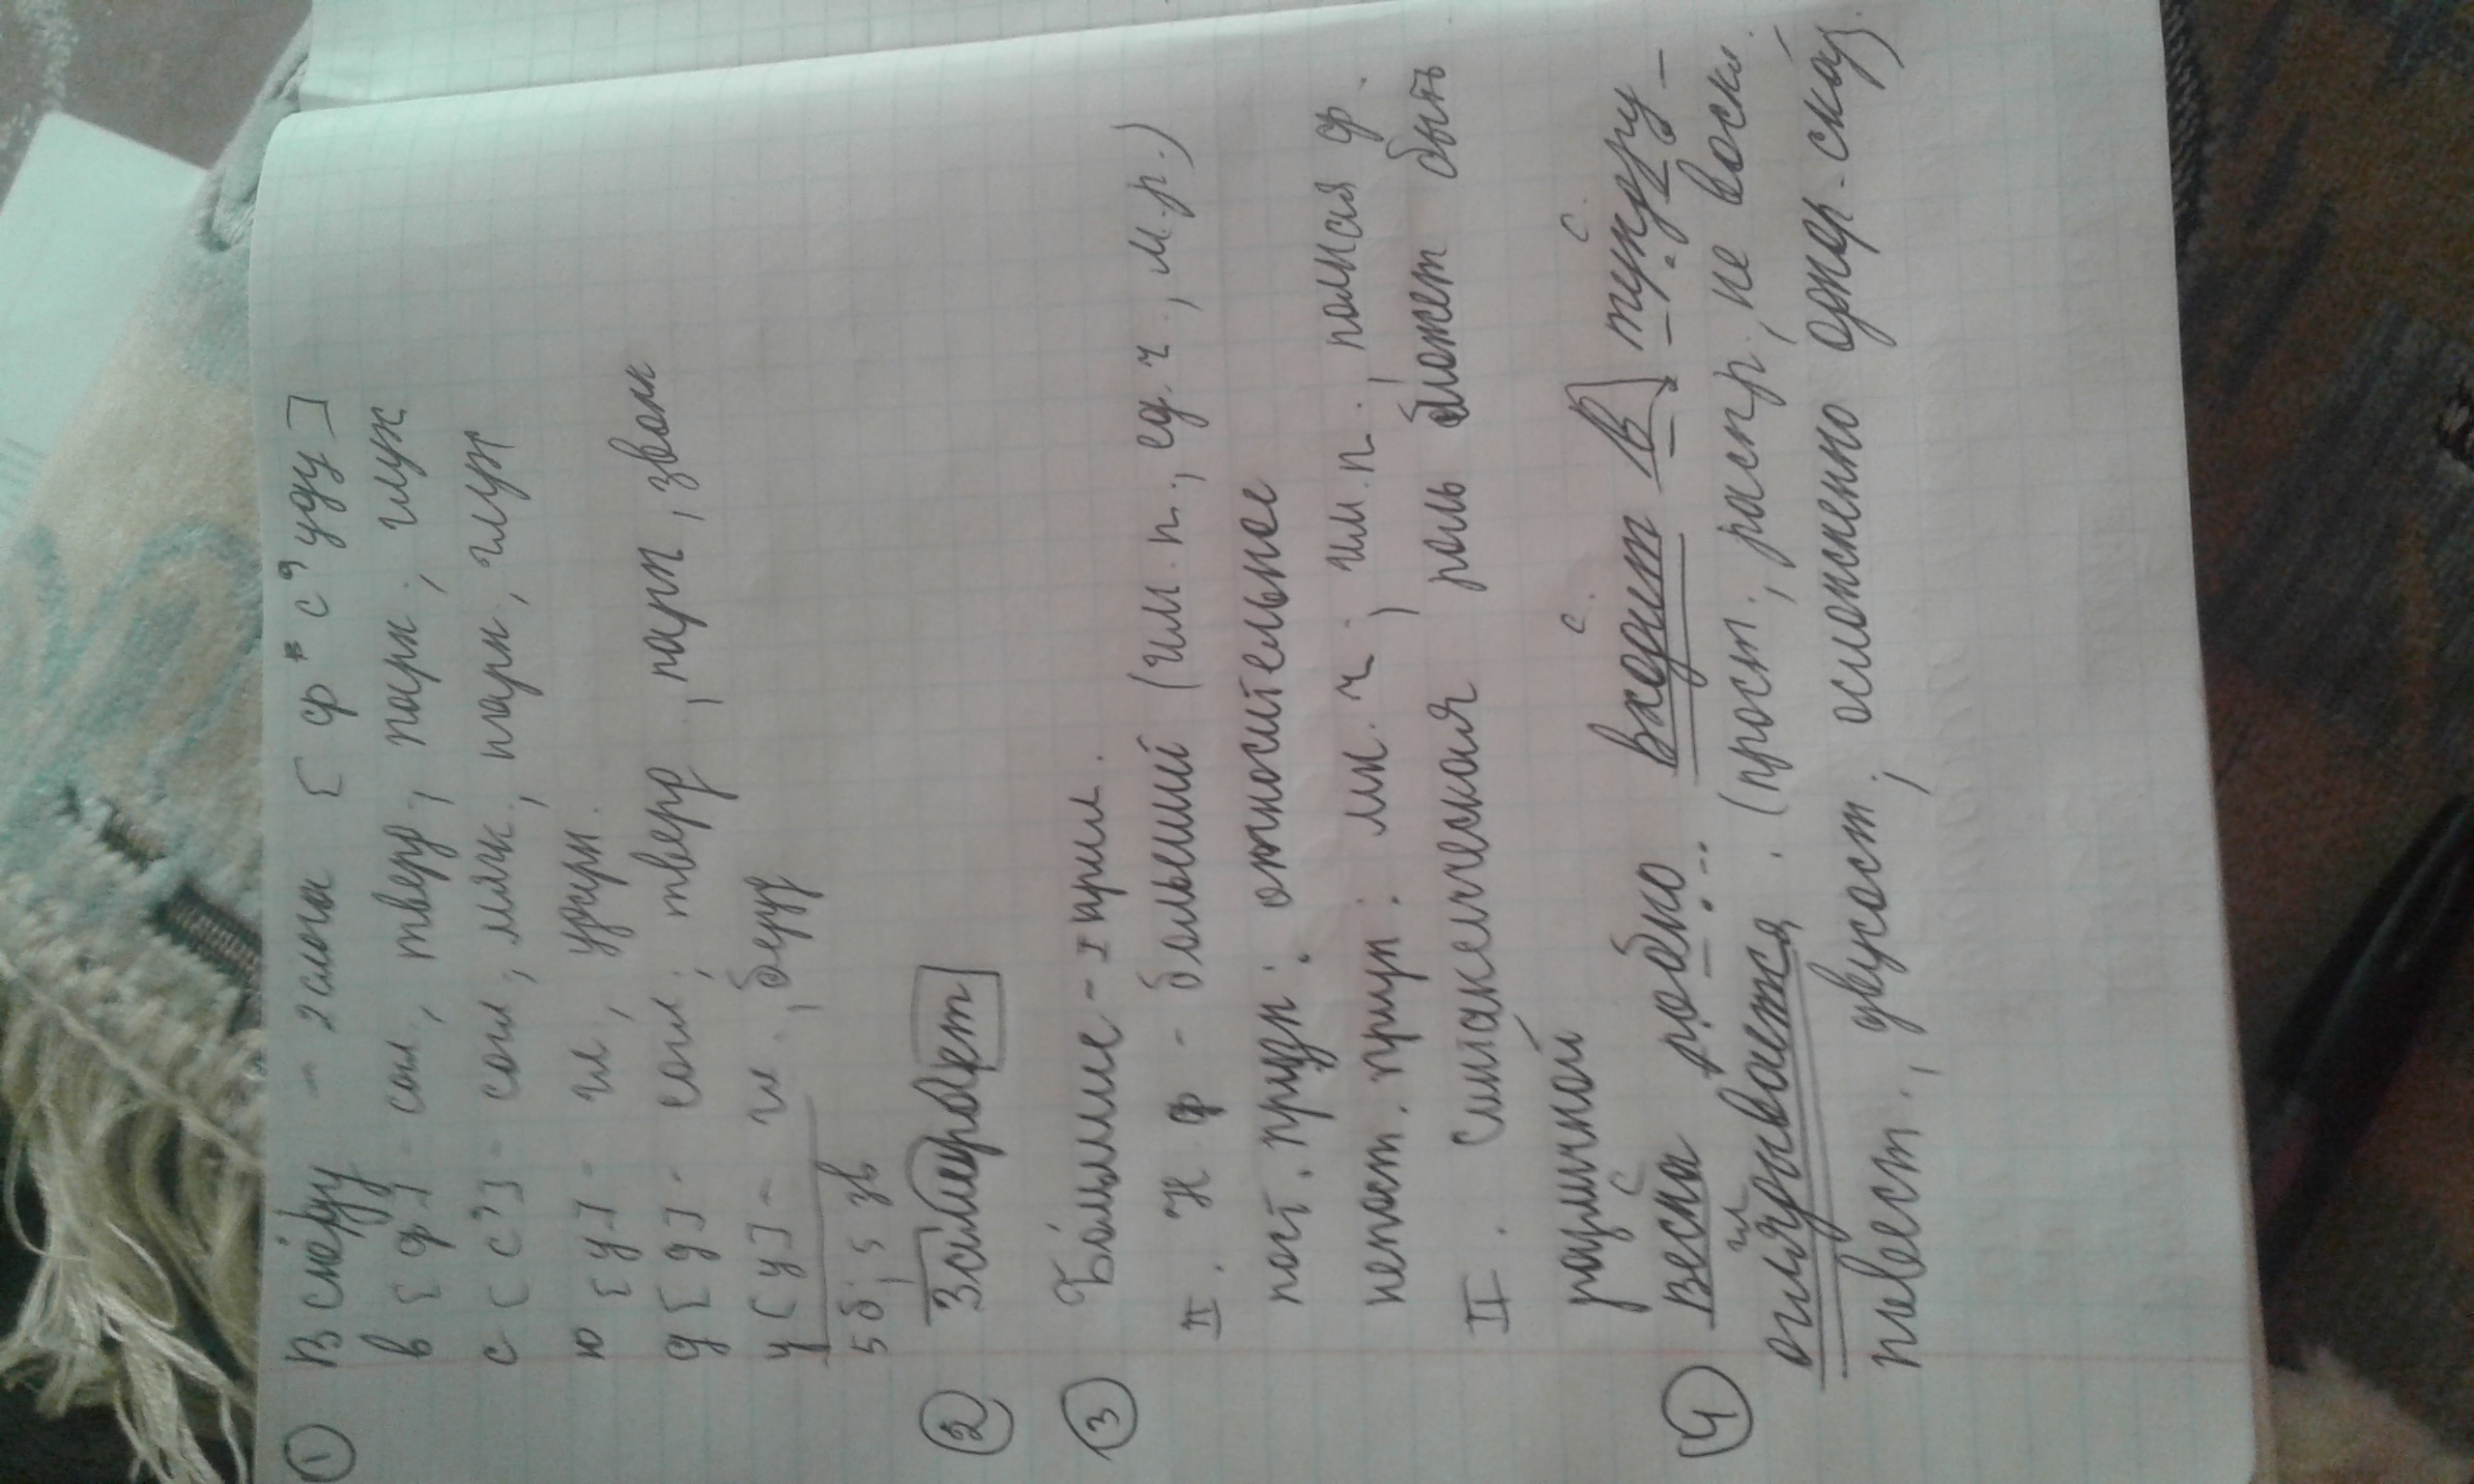 ① Всюду – 2 слога [ф* с' уду]
в [ф] – сол, тверд, парн, глух
с [с'] – согл, мягк, парн, глух
ю [у] – гл, ударн.
д [д] – согл, тверд, парн, звонк
у [у] – гл, безуд
5 б, 5 зв
② Замерзает
③ Большие – I прил.
II. Н ф – большой (им. п., ед. ч, м.р.)
пост. призн: относительное
непост. призн: мн. ч, им. п. полная ф.
II. Синтаксическая роль может быть
различной
④ весна робко входит в тундру
оглядывается. (прост, распр, не воскл.
повест, двусост, осложнено однор. сказ)